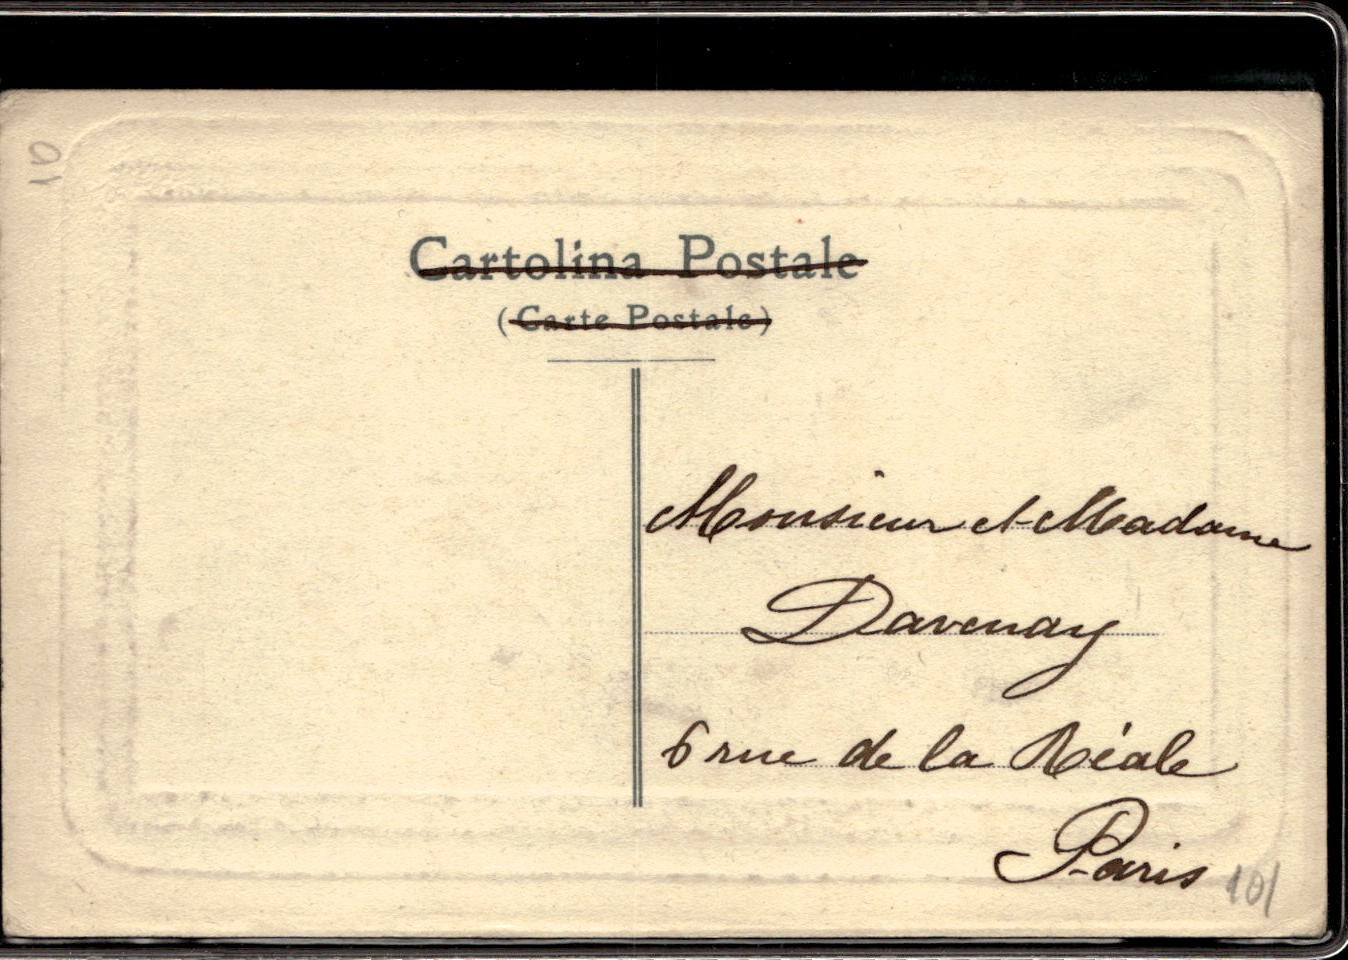 10
Cartolina Postale
(Carte Postale)
Monsieur et Madame
Davenay
6 rue de la Réale
Paris
101